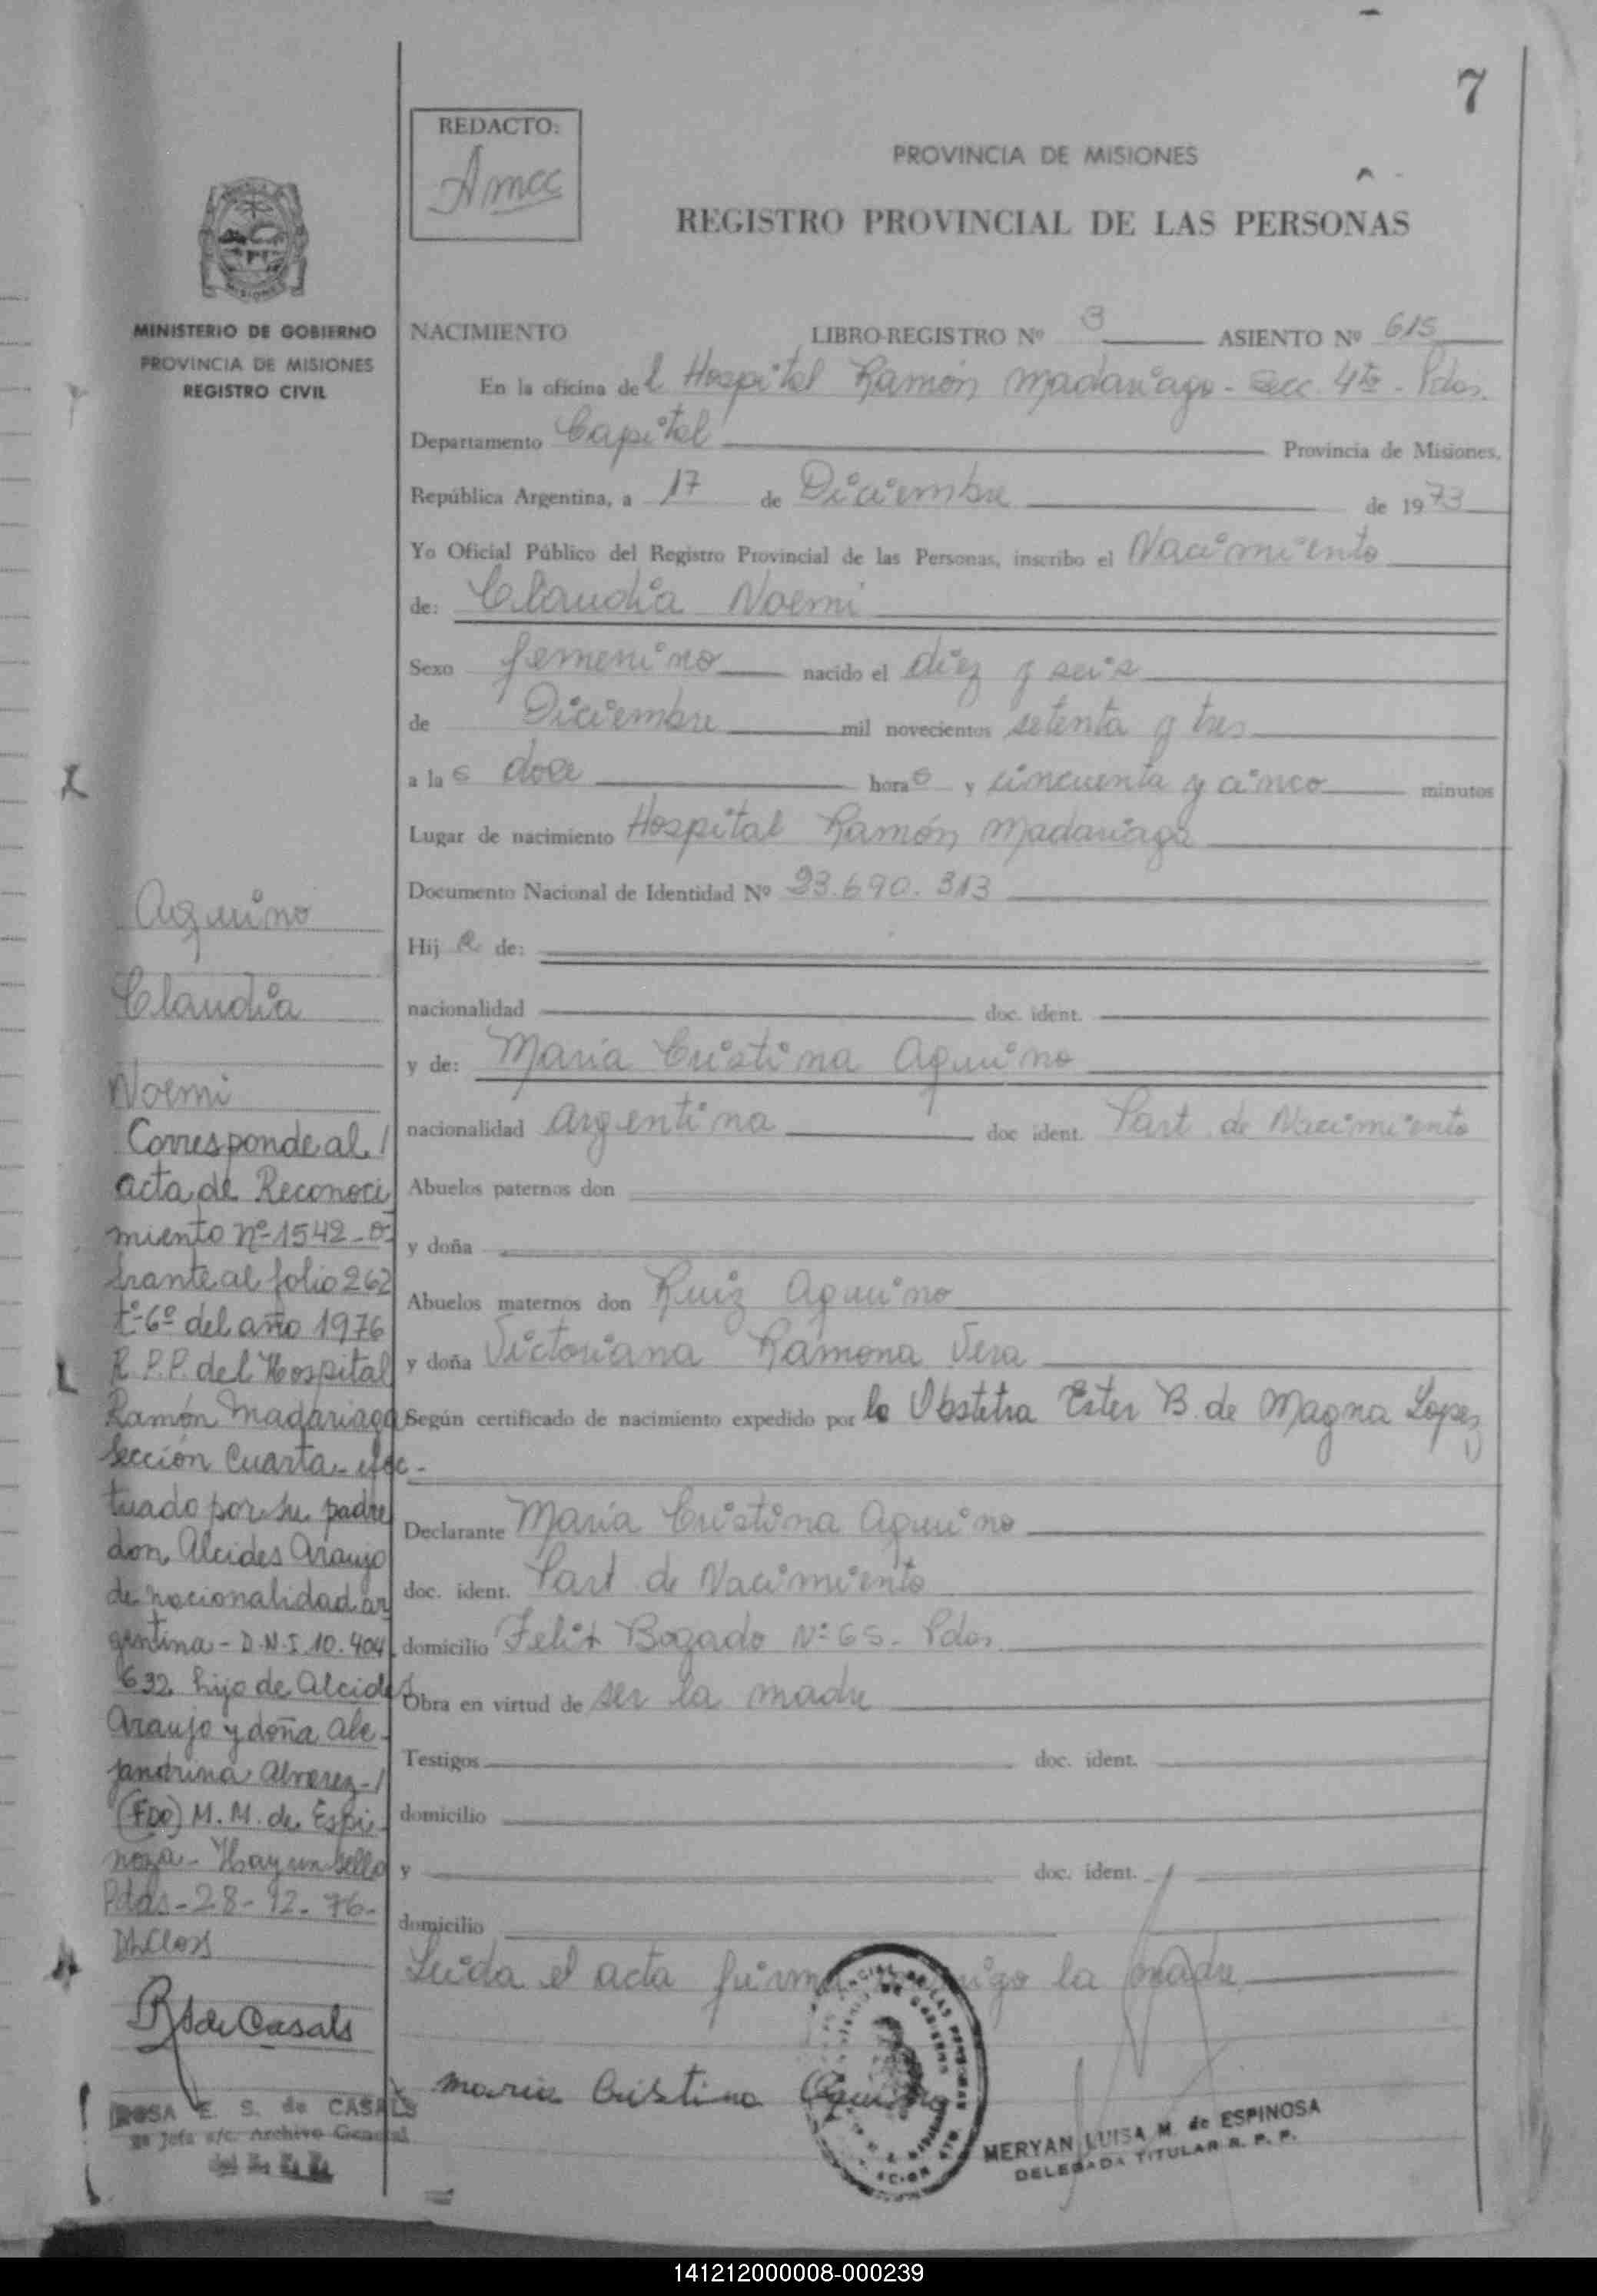 7
REDACTO:
Amcc
PROVINCIA DE MISIONES
REGISTRO PROVINCIAL DE LAS PERSONAS
MINISTERIO DE GOBIERNO
PROVINCIA DE MISIONES
REGISTRO CIVIL
NACIMIENTO LIBRO-REGISTRO Nº 3 ASIENTO Nº 615
En la oficina del Hospital Ramón Madariaga - Secc. 4ta - Pdas.
Departamento Capital Provincia de Misiones,
República Argentina, a 17 de Diciembre de 1973
Yo Oficial Público del Registro Provincial de las Personas, inscribo el Nacimiento
de: Claudia Noemi
Sexo femenino nacido el diez y seis
de Diciembre mil novecientos setenta y tres
a las doce horas y cincuenta y cinco minutos
Lugar de nacimiento Hospital Ramón Madariaga
Documento Nacional de Identidad Nº 23.690.313
Hija de:
nacionalidad doc. ident.
y de: María Cristina Aquino
nacionalidad argentina doc ident. Part. de Nacimiento
Abuelos paternos don
y doña
Abuelos maternos don Ruiz Aquino
y doña Victoriana Ramona Vera
Según certificado de nacimiento expedido por la Obstetra Ester B. de Magna Lopez
Declarante María Cristina Aquino
doc. ident. Part. de Nacimiento
domicilio Felix Bogado Nº 65 - Pdas.
Obra en virtud de ser la madre
Testigos doc. ident.
domicilio
y doc. ident.
domicilio
Leida el acta firma conmigo la madre
Maria Cristina Aquino
MERYAN LUISA M. de ESPINOSA
DELEGADA TITULAR R. P. P.
Aquino
Claudia
Noemi
Corresponde al /
acta de Reconoci
miento nº 1542 - o-
brante al folio 262
tº 6º del año 1976
R.P.P. del Hospital
Ramón Madariaga
Sección Cuarta - efec-
tuado por su padre
don Alcides Araujo
de nacionalidad ar
gentina - D.N.I. 10.404.
632 hijo de Alcides
Araujo y doña Ale-
jandrina Alvarez-/
(FDO) M. M. de Espi-
noza - Hay un sello
Pdas - 28 - 12 - 76 -
R S de Casals
ROSA E. S. de CASALS
Jefa a/c. Archivo General
141212000008-000239